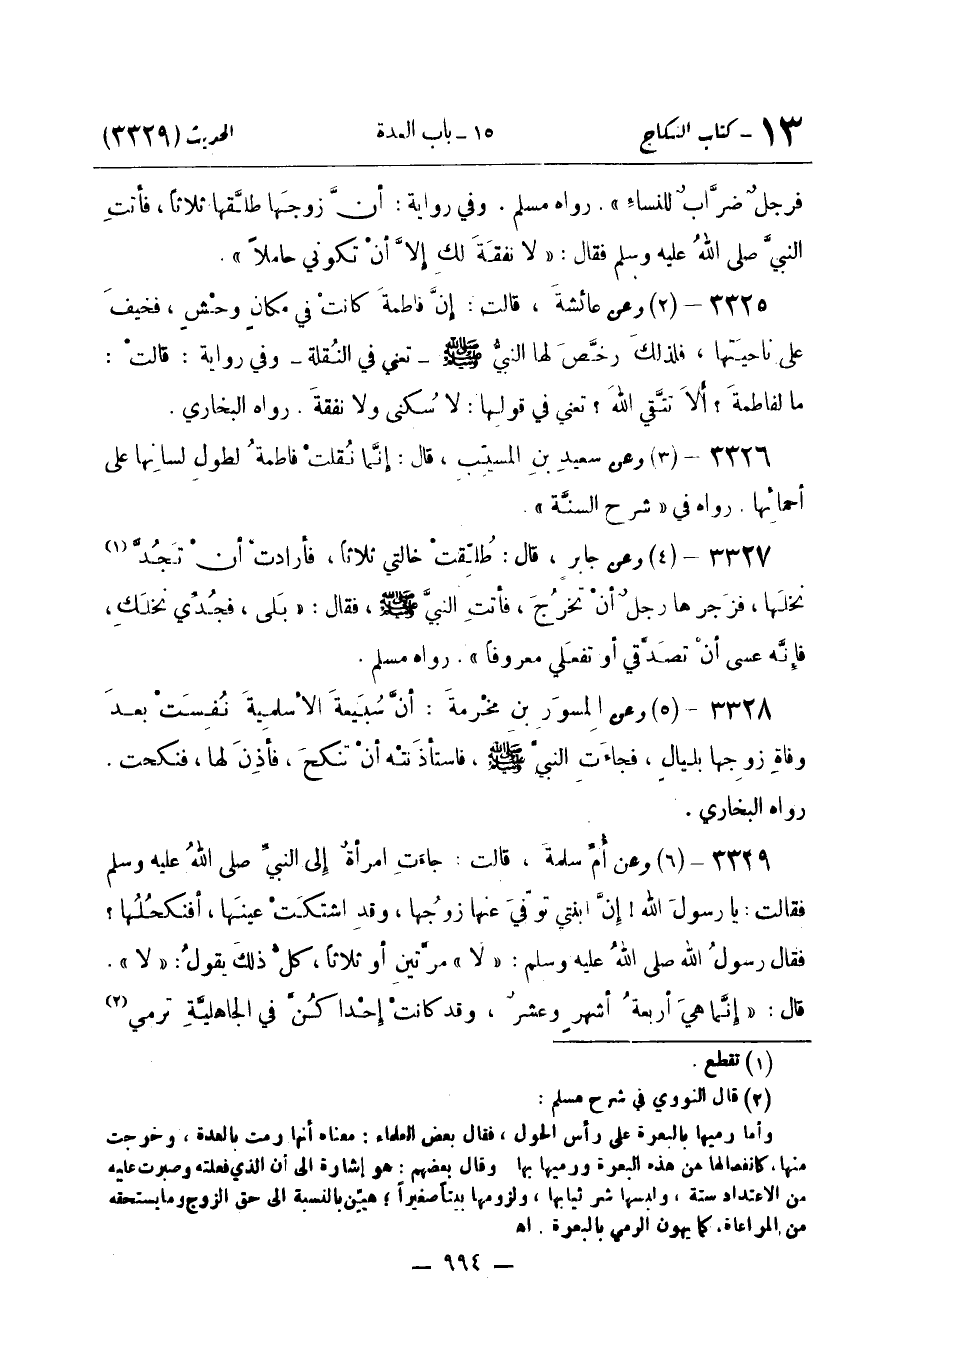 ١٣ - كتاب النكاح ١٥ - باب العدة الحديث (٣٣٢٩)
فرجلٌ ضرَّابٌ للنساءِ » . رواه مسلم . وفي رواية : أنَّ زوجَها طلَّقها ثلاثاً ، فأتتِ
النبيَّ صلى اللهُ عليه وسلم فقال : « لا نفقةَ لكِ إلاَّ أنْ تكوني حاملاً » .
٣٣٢٥ - (٢) وعن عائشةَ ، قالت : إنَّ فاطمةَ كانتْ في مكانٍ وحْشٍ ، فخيفَ
على ناحيتِها ، فلذلكَ رخَّصَ لها النبيُّ ﷺ - تعني في النُقلة - وفي رواية : قالتْ :
ما لفاطمةَ ؟ ألاَ تتَّقي اللهَ ؟ تعني في قولِها : لا سُكنى ولا نفقةَ . رواه البخاري .
٣٣٢٦ - (٣) وعن سعيدِ بنِ المسيّبِ ، قال : إنَّما نُقلتْ فاطمةُ لطولِ لسانِها على
أحمائِها . رواه في « شرح السنَّة » .
٣٣٢٧ - (٤) وعن جابرٍ ، قال : طُلّقتْ خالتي ثلاثاً ، فأرادتْ أنْ تَجُدَّ (١)
نخلَها ، فزَجرها رجلٌ أنْ تخرُجَ ، فأتتِ النبيَّ ﷺ ، فقال : « بَلى ، فجُدّي نخلَكِ ،
فإنَّه عسى أنْ تصَدَّقي أو تفعَلي معروفاً » . رواه مسلم .
٣٣٢٨ - (٥) وعن المِسوَرِ بنِ مخْرمةَ : أنَّ سُبَيعةَ الأسْلميةَ نُفِسَتْ بعدَ
وفاةِ زوجِها بليالٍ ، فجاءَتِ النبيَّ ﷺ ، فاستأذَنتْه أنْ تنكحَ ، فأذِنَ لها ، فنكحت .
رواه البخاري .
٣٣٢٩ - (٦) وعن أُمِّ سلمةَ ، قالت : جاءَتِ امرأةٌ إلى النبيِّ صلى اللهُ عليه وسلم
فقالت : يا رسولَ الله ! إنَّ ابنتي تُوفّيَ عنها زوجُها ، وقدِ اشتكتْ عينَها ، أفنكحُلُها ؟
فقال رسولُ الله صلى اللهُ عليه وسلم : « لا » مرَّتينِ أو ثلاثاً ، كلُّ ذلكَ يقولُ : « لا » .
قال : « إنَّما هيَ أربعةُ أشهرٍ وعشرٌ ، وقد كانتْ إحْداكُنَّ في الجاهليَّةِ ترمي (٢)
(١) تقطع .
(٢) قال النووي في شرح مسلم :
وأما رميها بالبعرة على رأس الحول ، فقال بعض العلماء : معناه أنها رمت بالعدة ، وخرجت
منها ، كانفصالها من هذه البعرة ورميها بها وقال بعضهم : هو إشارة الى أن الذي فعلته وصبرت عليه
من الاعتداد سنة ، ولبسها شر ثيابها ، ولزومها بيتاً صغيراً ؛ هيّن بالنسبة الى حق الزوج وما يستحقه
من المراعاة ، كما يهون الرمي بالبعرة . اه
- ٩٩٤ -